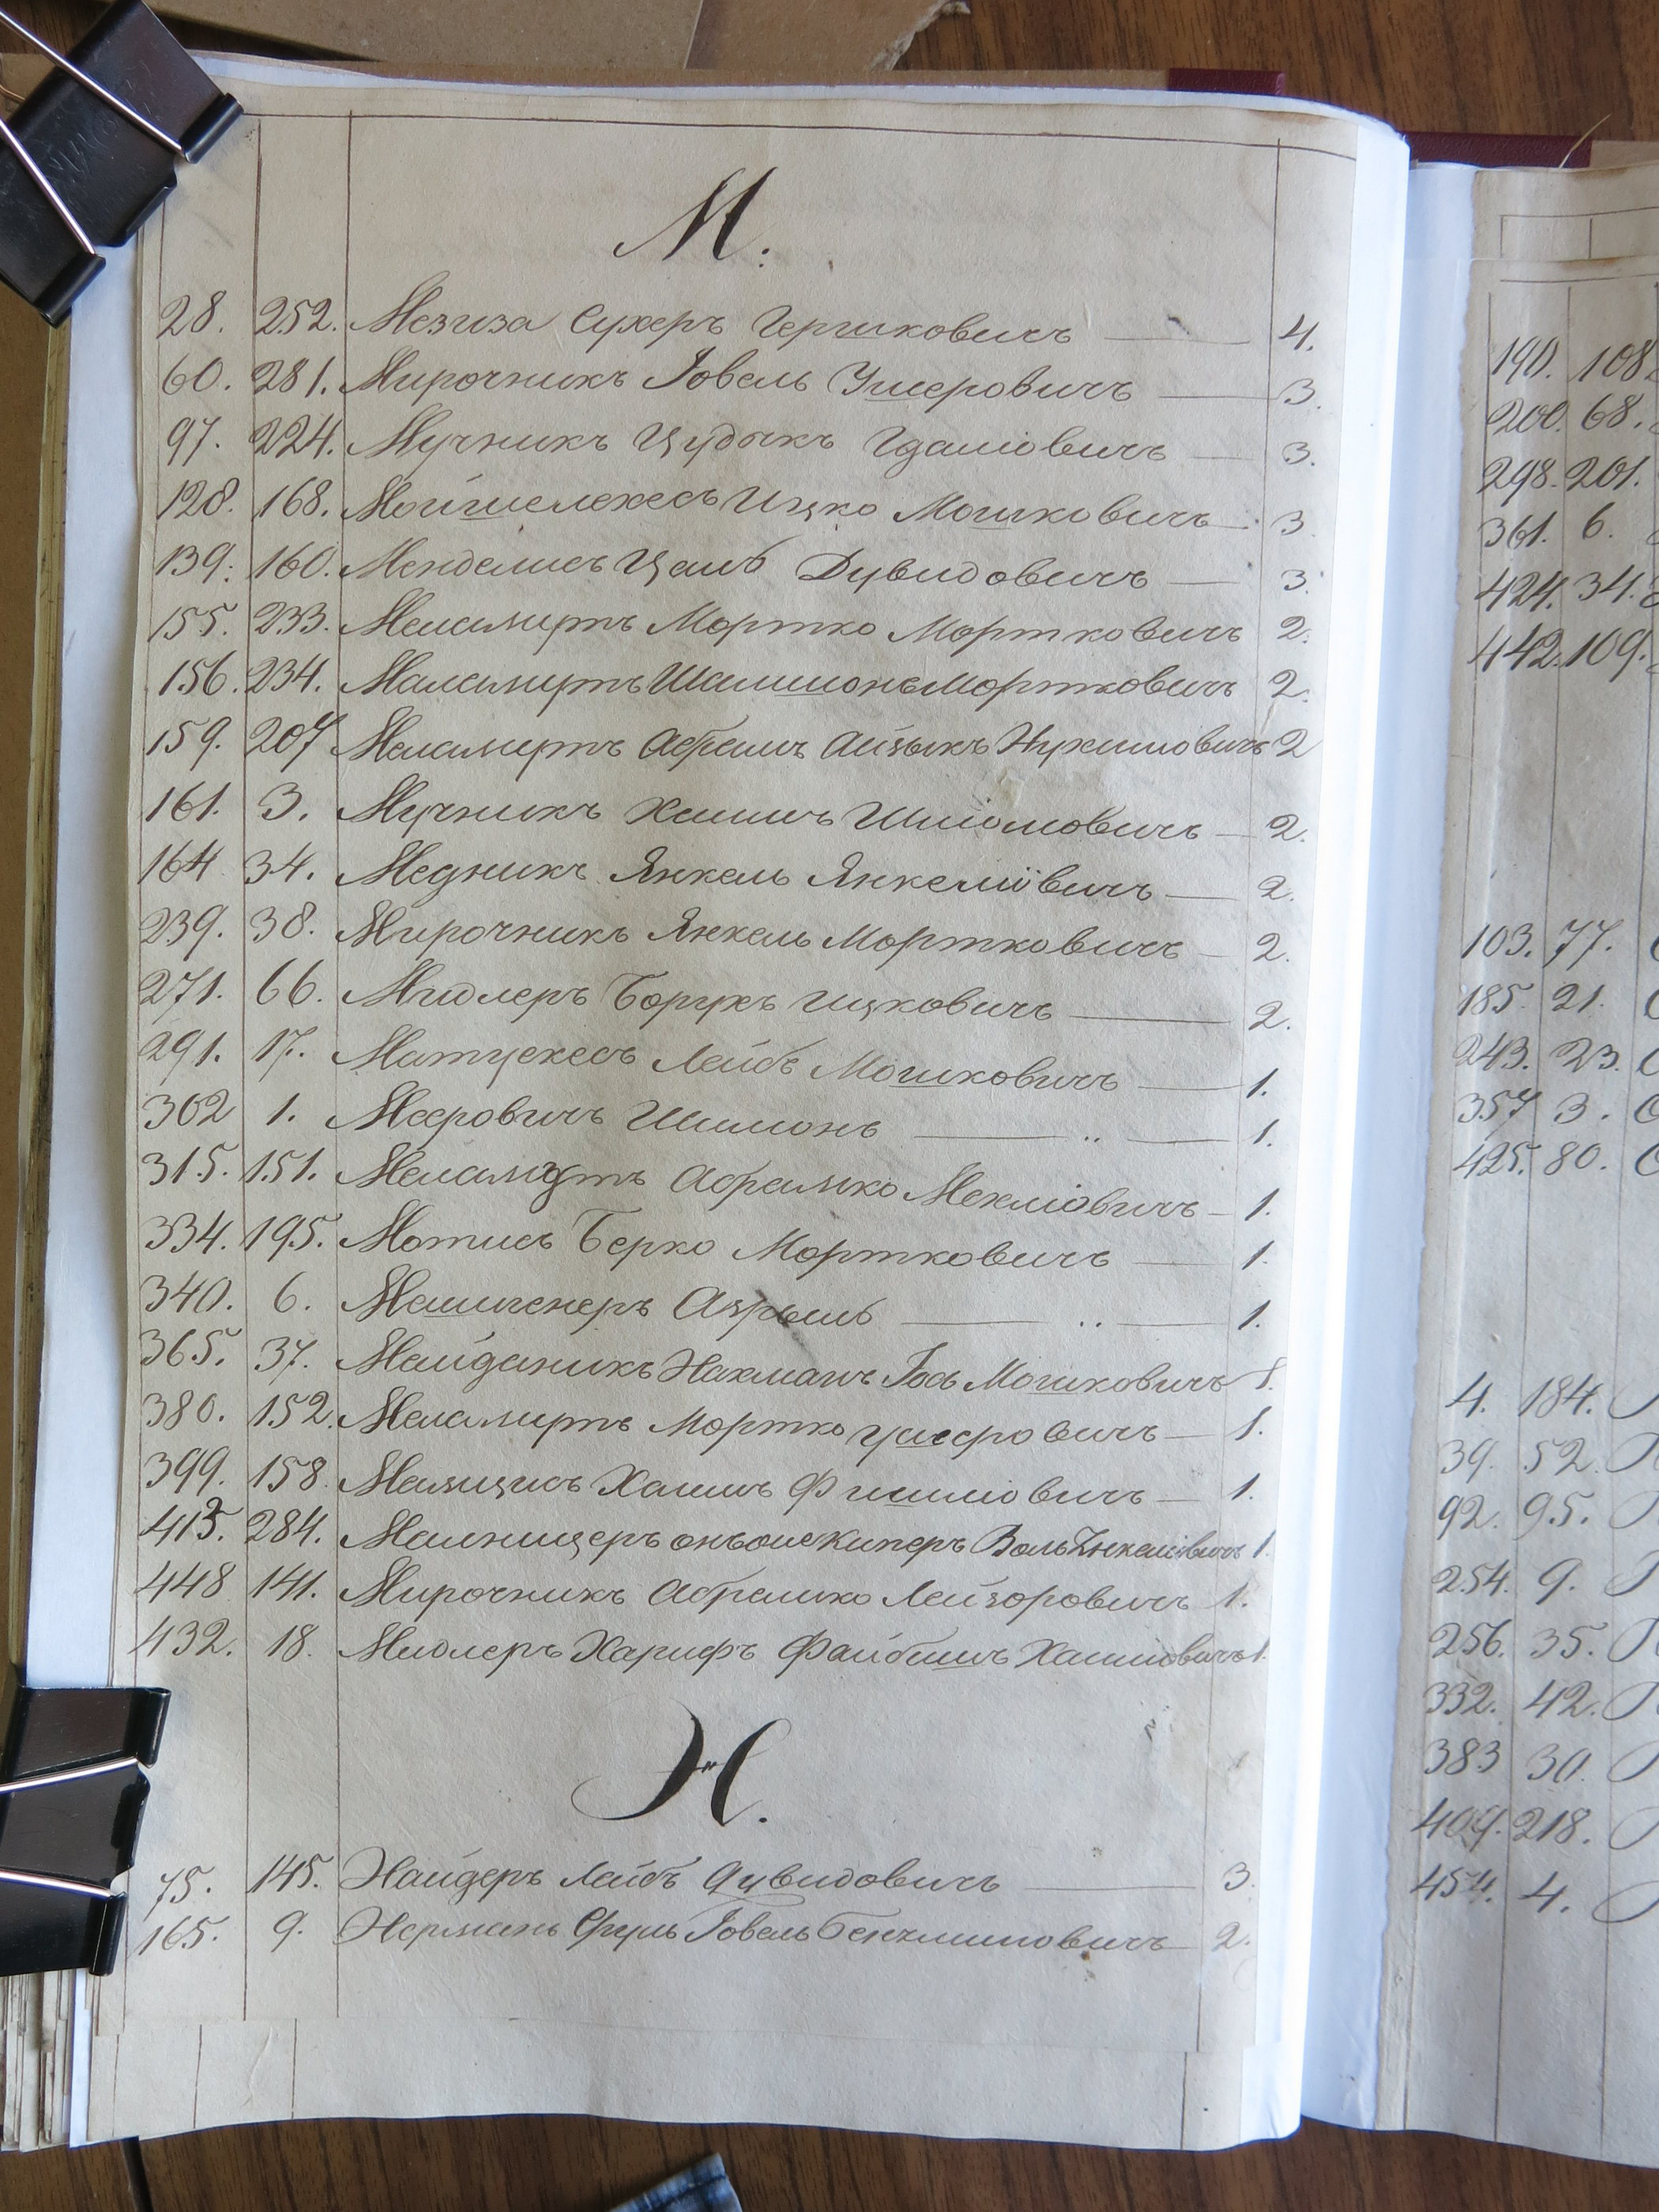 М.
28. 252. Мезиза Сухеръ Гершковичъ 4.
60. 281. Мирочникъ Іовель Ушеровичъ 3.
97. 224. Мучникъ Цудыкъ Гдаліовичъ 3.
128. 168. Мойшелехесъ Ицко Мошковичъ 3
139. 160. Менделисъ Цаль Дувидовичъ 3.
155. 233. Меламутъ Мортко Мортковичъ 2.
156. 234. Маламутъ Шлимонь Мортковичъ 2.
159. 207 Меламутъ Абрамъ Айзыкъ Нухимовичъ 2
161. 3. Мучникъ Хаимъ Шліомовичъ 2.
164 34. Медникъ Янкель Янкеліовичъ 2.
239. 38. Мирочникъ Янкель Мортковичъ 2.
271. 66. Мидлеръ Борухъ Ицковичъ 2.
291. 17. Матускесъ Лейбъ Мошковичъ 1.
302 1. Мееровичъ Шимонь 1.
315. 151. Меламудтъ Абрамко Мехліовичъ 1.
334. 195. Мотисъ Берко Мортковичъ 1.
340. 6. Азрыль 1.
365. 37. Майданикъ Нахманъ Іось Мошковичъ 1.
380. 152. Меламутъ Мортко Ушеровичъ 1.
399. 158. Хаимъ Фишліовичъ 1.
413. 284. онъ же Киперъ Воль Янкеліовичъ 1.
448 141. Мирочникъ Абрамко Лейзоровичъ 1.
432. 18. Мидлеръ Харифъ Файбишъ Хаимовичъ 1.
Н.
75. 145. Найдеръ Лейбъ Дувидовичъ 3.
165. 9. Нерманъ Сруль Іовель Беніяминовичъ 2.
190. 108.
200. 68.
298. 201.
361. 6.
424. 34.
442. 109.
103. 77.
185. 21.
243. 23.
357 3.
425. 80.
4. 184.
39. 52.
92. 95.
254. 9.
256. 35.
332. 42.
383 30.
409. 218.
454. 4.